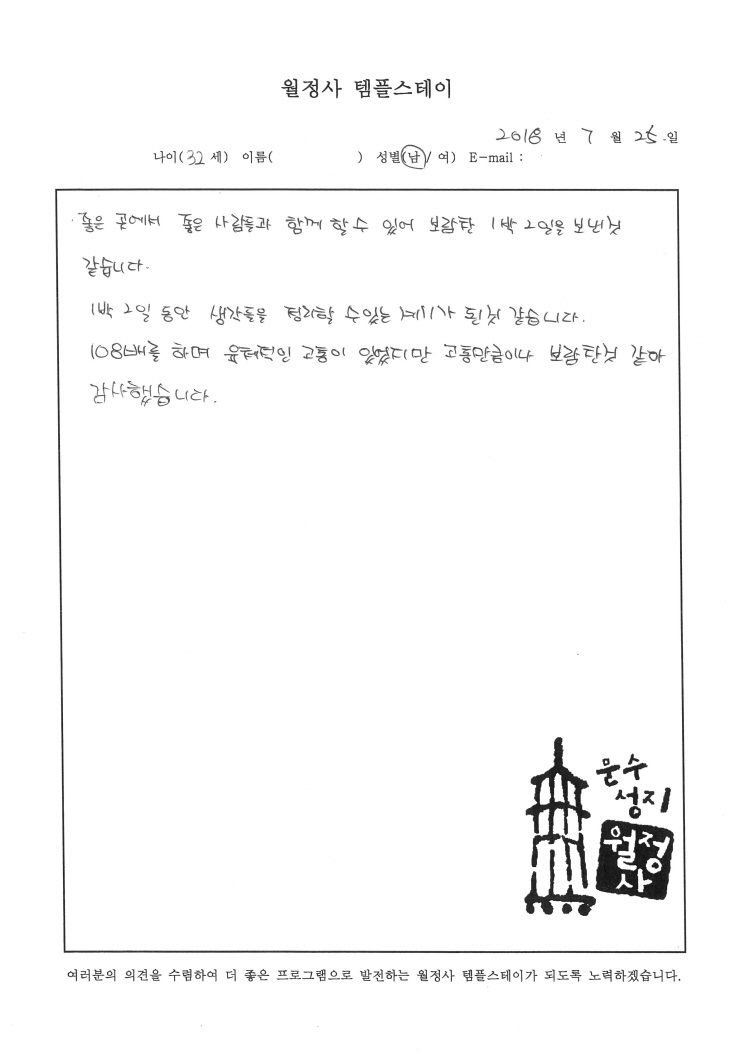 월정사 템플스테이
2018 년 7 월 25 일
나이(32 세) 이름( ) 성별(남/ 여) E-mail :
좋은 곳에서 좋은 사람들과 함께 할 수 있어 보람찬 1박 2일을 보낸것
같습니다.
1박 2일 동안 생각들을 정리할 수 있는 계기가 된것 같습니다.
108배를 하며 육체적인 고통이 있었지만 고통만큼이나 보람찬것 같아
감사했습니다.
문수
성지
월정
사
여러분의 의견을 수렴하여 더 좋은 프로그램으로 발전하는 월정사 템플스테이가 되도록 노력하겠습니다.